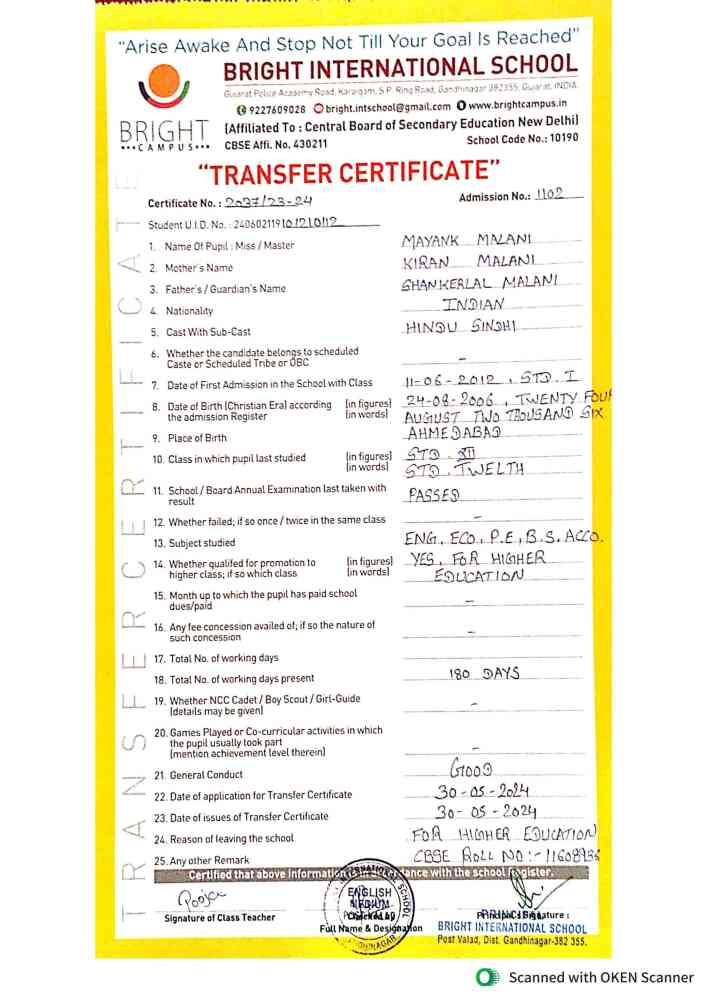 "Arise Awake And Stop Not Till Your Goal Is Reached"
BRIGHT INTERNATIONAL SCHOOL
Gujarat Police Academy Road, Karaigam, S.P. Ring Road, Gandhinagar 382355, Gujarat, INDIA.
9227609028 bright.intschool@gmail.com www.brightcampus.in
BRIGHT
•••CAMPUS•••
(Affiliated To : Central Board of Secondary Education New Delhi)
CBSE Affi. No. 430211 School Code No.: 10190
"TRANSFER CERTIFICATE"
Certificate No. : 2037/23-24 Admission No.: 1102
Student U.I.D. No. : 24060211910121012
1. Name Of Pupil : Miss / Master MAYANK MALANI
2. Mother's Name KIRAN MALANI
3. Father's / Guardian's Name SHANKERLAL MALANI
4. Nationality INDIAN
5. Cast With Sub-Cast HINDU SINDHI
6. Whether the candidate belongs to scheduled
Caste or Scheduled Tribe or OBC -
7. Date of First Admission in the School with Class 11-06-2012, STD. I
8. Date of Birth (Christian Era) according (in figures) 24-08-2006, TWENTY FOUR
the admission Register (in words) AUGUST TWO THOUSAND SIX
9. Place of Birth AHMEDABAD
10. Class in which pupil last studied (in figures) STD. XII
(in words) STD. TWELTH
11. School / Board Annual Examination last taken with
result PASSED
12. Whether failed; if so once / twice in the same class -
13. Subject studied ENG, ECO, P.E, B.S, ACCO.
14. Whether qualifed for promotion to (in figures) YES, FOR HIGHER
higher class; if so which class (in words) EDUCATION
15. Month up to which the pupil has paid school
dues/paid -
16. Any fee concession availed of; if so the nature of
such concession -
17. Total No. of working days
18. Total No. of working days present 180 DAYS
19. Whether NCC Cadet / Boy Scout / Girl-Guide
(details may be given) -
20. Games Played or Co-curricular activities in which
the pupil usually took part
(mention achievement level therein) -
21. General Conduct GOOD
22. Date of application for Transfer Certificate 30-05-2024
23. Date of issues of Transfer Certificate 30-05-2024
24. Reason of leaving the school FOR HIGHER EDUCATION
25. Any other Remark CBSE ROLL NO :- 11608936
Certified that above Information with the school Register.
Pooja
ENGLISH
MEDIUM
Signature of Class Teacher
Checked by
Full Name & Designation
Signature :
BRIGHT INTERNATIONAL SCHOOL
Post Valad, Dist. Gandhinagar-382 355.
TRANSFER CERTIFICATE
Scanned with OKEN Scanner